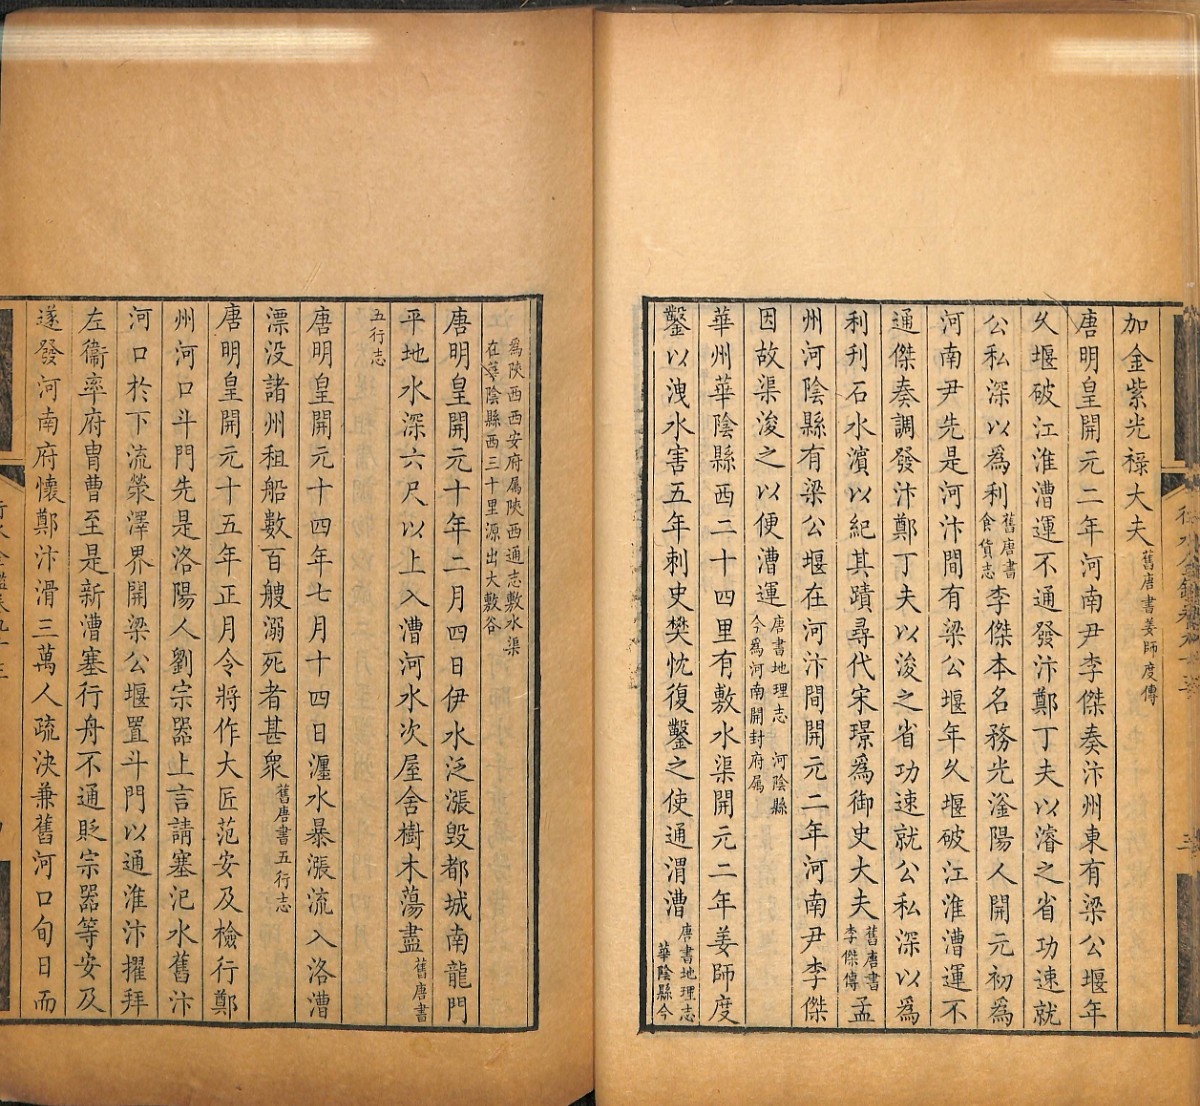 加金紫光祿大夫舊唐書姜師度傳
唐明皇開元二年河南尹李傑奏汴州東有梁公堰年
久堰破江淮漕運不通發汴鄭丁夫以濬之省功速就
公私深以為利舊唐書食貨志李傑本名務光滏陽人開元初為
河南尹先是河汴間有梁公堰年久堰破江淮漕運不
通傑奏調發汴鄭丁夫以浚之省功速就公私深以為
利刋石水濵以紀其蹟尋代宋璟為御史大夫舊唐書李傑傳孟
州河陰縣有梁公堰在河汴間開元二年河南尹李傑
因故渠浚之以便漕運唐書地理志 河陰縣今為河南開封府属
華州華陰縣西二十四里有敷水渠開元二年姜師度
鑿以洩水害五年刺史樊忱復鑿之使通渭漕唐書地理志華陰縣今
為陝西西安府属陝西通志敷水渠在華陰縣西三十里源出大敷谷
唐明皇開元十年二月四日伊水泛漲毀都城南龍門
平地水深六尺以上入漕河水次屋舍樹木蕩盡舊唐書
五行志
唐明皇開元十四年七月十四日瀍水暴漲流入洛漕
漂没諸州租船數百艘溺死者甚衆舊唐書五行志
唐明皇開元十五年正月令將作大匠范安及檢行鄭
州河口斗門先是洛陽人劉宗器上言請塞汜水舊汴
河口於下流滎澤界開梁公堰置斗門以通淮汴擢拜
左衞率府胄曹至是新漕塞行舟不通貶宗器等安及
遂發河南府懷鄭汴滑三萬人疏決兼舊河口旬日而